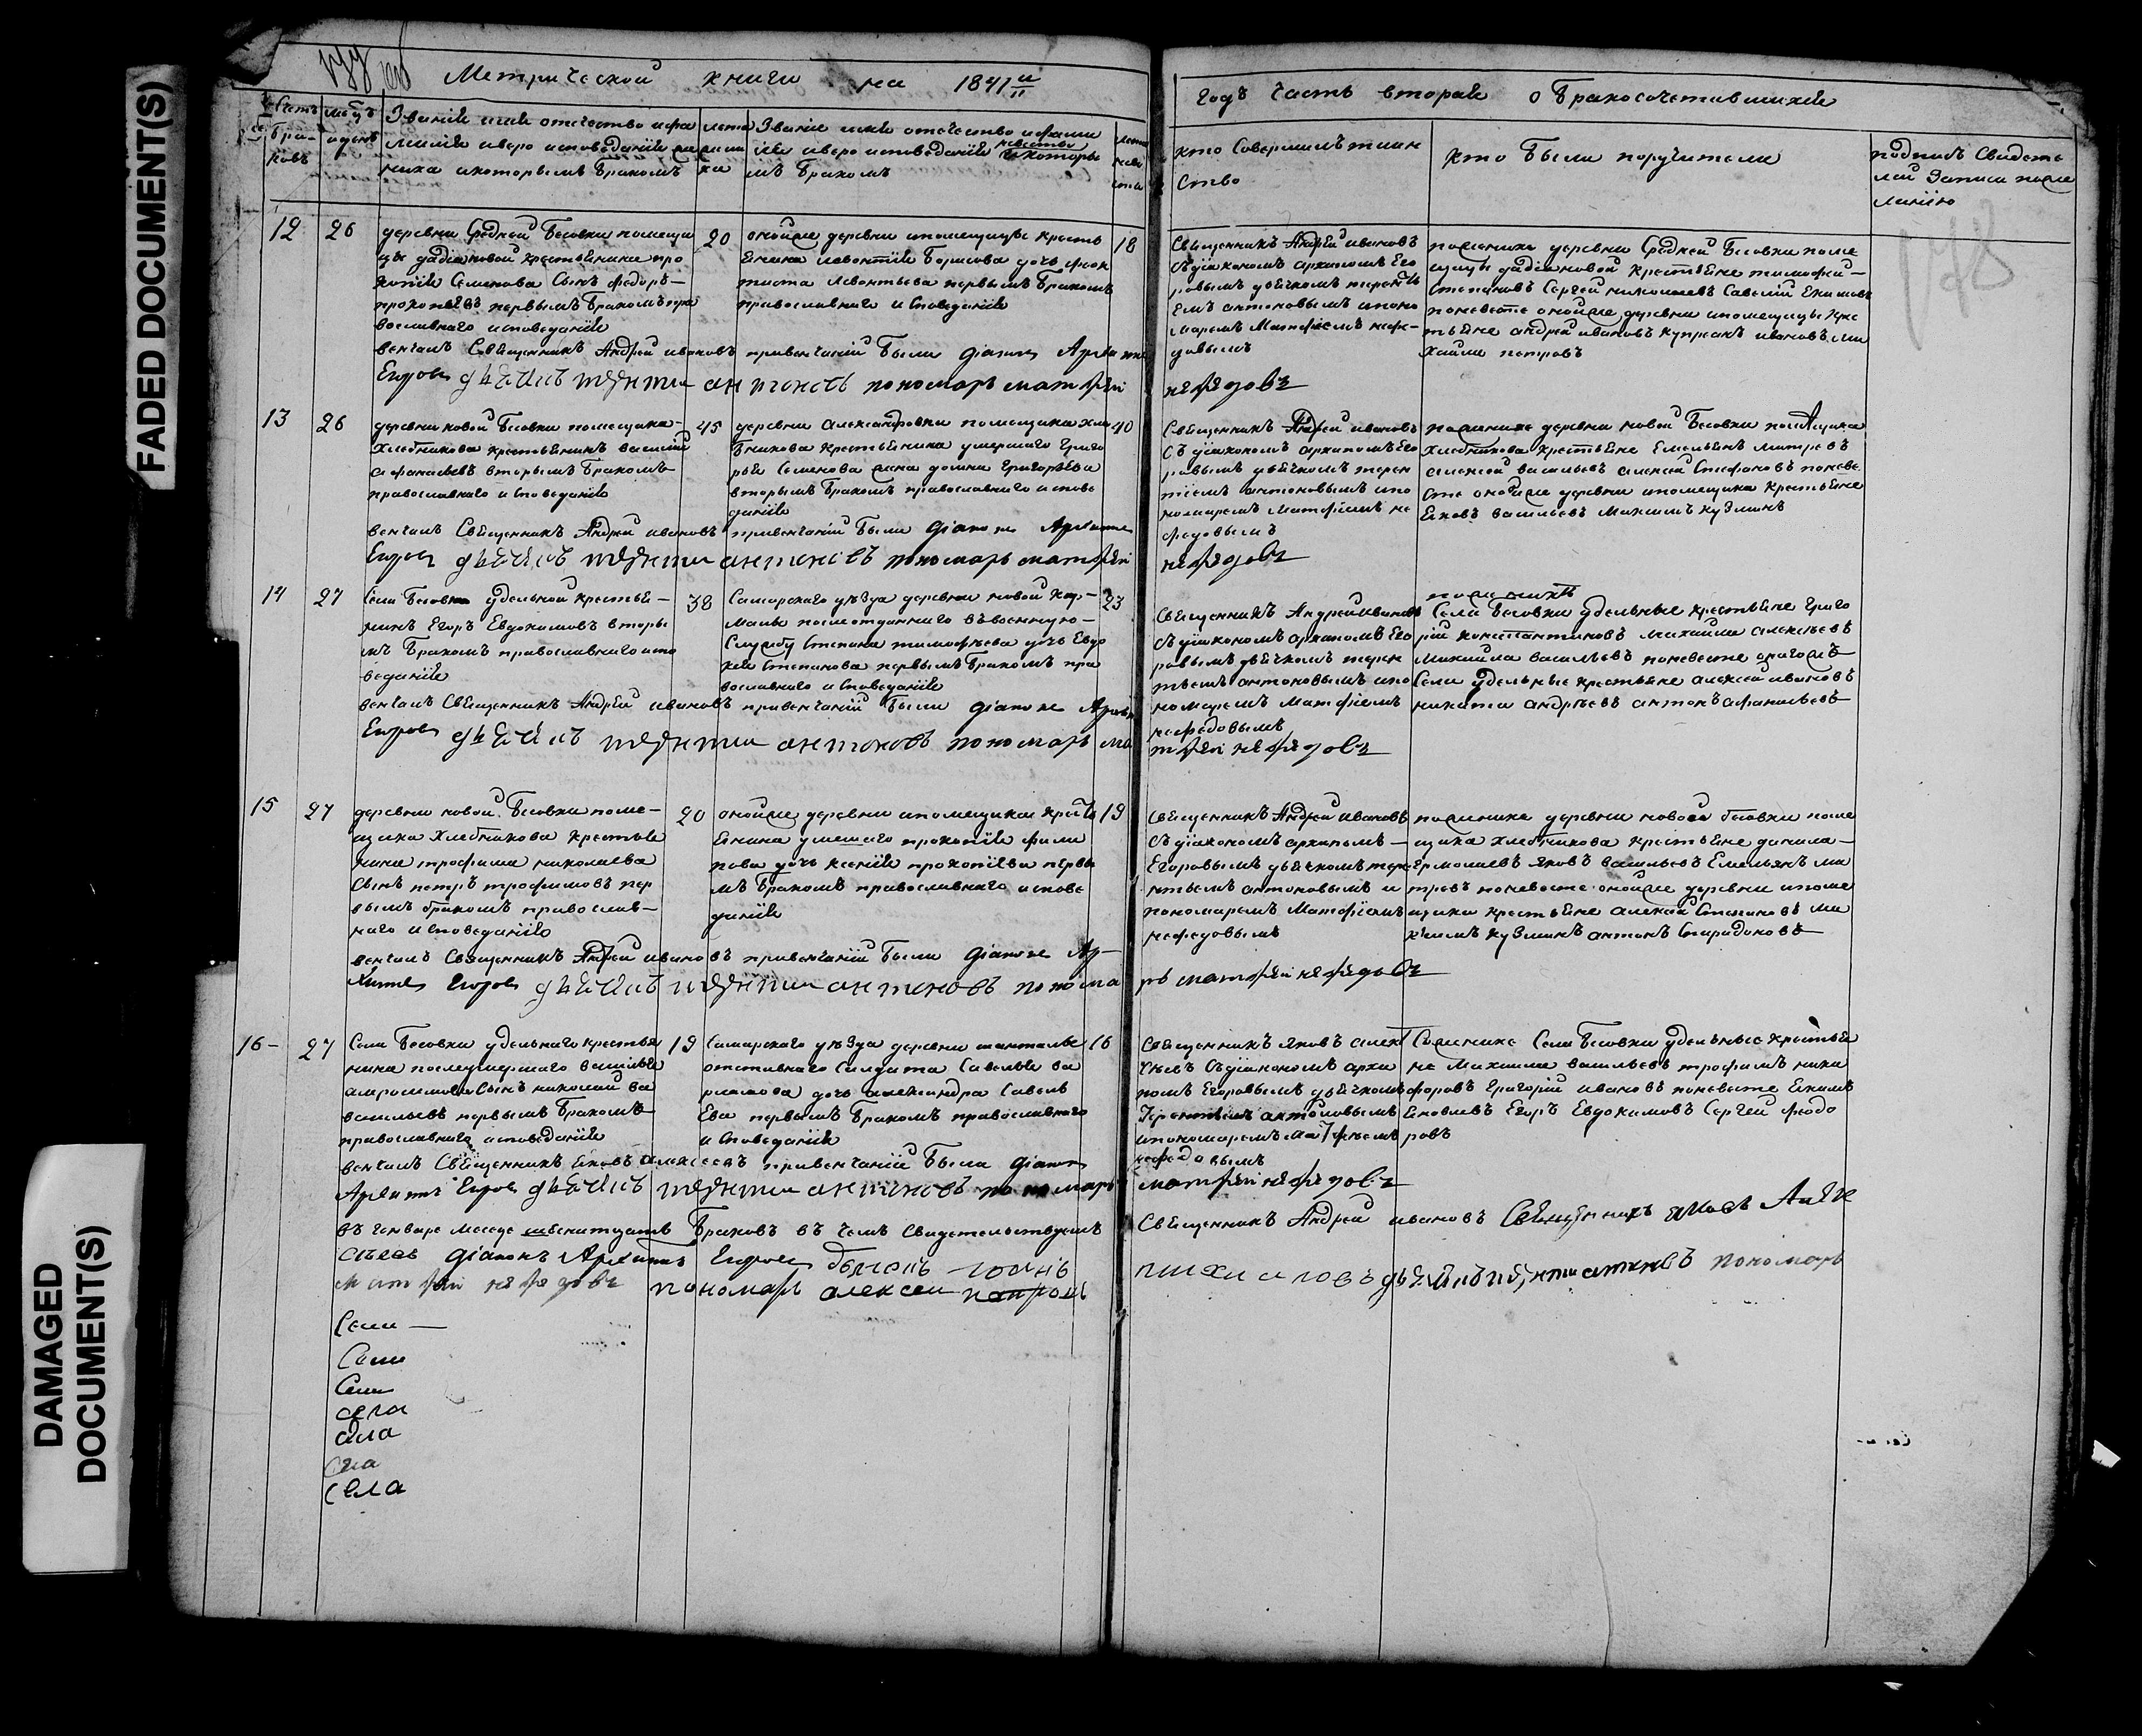 FADED DOCUMENT(S)
DAMAGED DOCUMENT(S)
Метрической книги на 1841й
годъ Часть вторая о бракосочетавшихся
Счетъ браковъ
мсцъ и день
Званіе имя отечество и фамилія и вера исповеданія жениха и которымъ бракомъ
лета жениха
Званіе имя отечество и фамилія и вера исповеданія невесты и которымъ бракомъ
лета невесты
кто Совершилъ таинство
кто были поручители
подпись Свидетелей Записи по желанію
12
26
деревни Средней Бесовки помещи
цы дадіановой крестьянина про
копія Семенова Сынъ федоръ
прокопьевъ первымъ бракомъ пра
вославнаго исповеданія
20
оной же деревни и помещицы кресть
янина левонтія Борисова дочь феок
тиста Левонтьева первымъ бракомъ
православнаго исповеданія
18
Священникъ Андрей ивановъ
съ діякономъ архипомъ Его
ровымъ дьячкомъ терентъ
емъ антоновымъ и поно
маремъ Матфіемъ неф
едовымъ
по женихе деревни Средней Бесовки поме
щицы дадіановой крестьяне тимофей
Степановъ Сергей николаевъ Савелій Екимовъ
по невесте оной же деревни и помещицы кре
стьяне андрей ивановъ купреянъ ивановъ ми
хайла петровъ
венчалъ Священникъ Андрей ивановъ при венчаніи были діаконъ Архипъ
Егоровъ дьячекъ терентии антоновъ пономарь матфеи
нефедовъ
13
26
деревни новой Бесовки помещика
Хлебникова крестьянинъ василий
афанасьевъ вторымъ бракомъ
православнаго исповеданія
45
деревни александровки помещика хле
бникова крестьянина умершаго григо
рья Семенова жена домна григорьева
вторымъ бракомъ православнаго испове
данія
40
Священникъ Андрей ивановъ
Съ діякономъ архипомъ Его
ровымъ дьячкомъ терен
тіемъ антоновымъ и по
номаремъ Матфіемъ не
федовымъ
по женихе деревни новой Бесовки помещика
хлебникова крестьяне Емельянъ митревъ
алексей васильевъ алексей Стефановъ по неве
сте оной же деревни и помещика крестьяне
Яковъ васильевъ Максимъ кузминъ
венчалъ Священникъ Андрей ивановъ при венчаніи были діаконъ Архипъ
Егоровъ дьячекъ терентии антоновъ пономарь матфеи
нефедовъ
14
27
Села Бесовки удельной крестья
нинъ Егоръ Евдокимовъ вторы
мъ бракомъ православнаго испо
веданія
38
Самарскаго уезда деревни новой
после отданнаго въ военную
Службу Степана тимофеева дочь Евдо
кея Степанова первымъ бракомъ пра
вославнаго исповеданія
23
Священникъ Андрей ивановъ
съ діякономъ архипомъ Его
ровымъ дьячкомъ терен
тьемъ антоновымъ и по
номаремъ Матфіемъ
нефедовымъ
по женихе
Села Бесовки удельные крестьяне Григо
рій константиновъ Михайла алексеевъ
Михайла васильевъ по невесте онагожъ
Села удельные крестьяне алексей ивановъ
никита андреевъ антонъ афанасьевъ
венчалъ Священникъ Андрей ивановъ при венчаніи были діаконъ Архипъ
Егоровъ дьячекъ терентии антоновъ пономарь ма
тфеи нефедовъ
15
27
деревни новой Бесовки поме
щика Хлебникова крестья
нина трофима николаева
Сынъ петръ трофимовъ пер
вымъ бракомъ православ
наго исповеданія
20
оной же деревни и помещика кресть
янина умершаго прокопія фили
пова дочь ксенія прокопіева первы
мъ бракомъ православнаго испове
данія
19
Священникъ Андрей ивановъ
съ діякономъ архипомъ
Егоровымъ дьячкомъ тере
нтьемъ антоновымъ и
пономаремъ Матфіемъ
нефедовымъ
по женихе деревни новой бесовки поме
щика хлебникова крестьяне данила
Ермолаевъ яковъ васильевъ Емельянъ ми
тревъ по невесте оной же деревни и поме
щика крестьяне алексей Степановъ ма
ксимъ кузминъ антонъ Спиридоновъ
венчалъ Священникъ Андрей ивановъ при венчаніи были діаконъ Ар
хипъ Егоровъ дьячекъ терентии антоновъ понома
рь матфеи нефедовъ
16
27
Села Бесовки удельнаго крестья
нина после умершаго василья
амросимова Сынъ николай ва
васильевъ первымъ бракомъ
православнаго исповеданія
19
Самарскаго уезда деревни
отставнаго Салдата Савелья ва
рламова дочь александра Савель
Ева первымъ бракомъ православнаго
исповеданія
16
Священникъ яковъ алек
сеевъ Съ діякономъ архи
помъ Егоровымъ дьячкомъ
терентьемъ антоновымъ
и пономаремъ матфеемъ
нефедовымъ
по женихе Села Бесовки удельные крестья
не Михайла васильевъ трофимъ ники
форовъ григорій ивановъ по невесте Екимъ
Яковлевъ Егоръ Евдокимовъ Сергей федо
ровъ
венчалъ Священникъ яковъ алексеевъ при венчаніи были діаконъ
Архипъ Егоровъ дьячекъ терентии антоновъ пономарь
матфеи нефедовъ
въ генваре месяце шеснатцать браковъ въ чемъ Свидетельствуемъ
Священникъ Андрей ивановъ Священникъ яковъ Алек
сѣевъ діаконъ Архипъ Егоровъ
матфеи нефедовъ пономарь алексеи
пономарь
Села
Села
Села
села
села
села
села